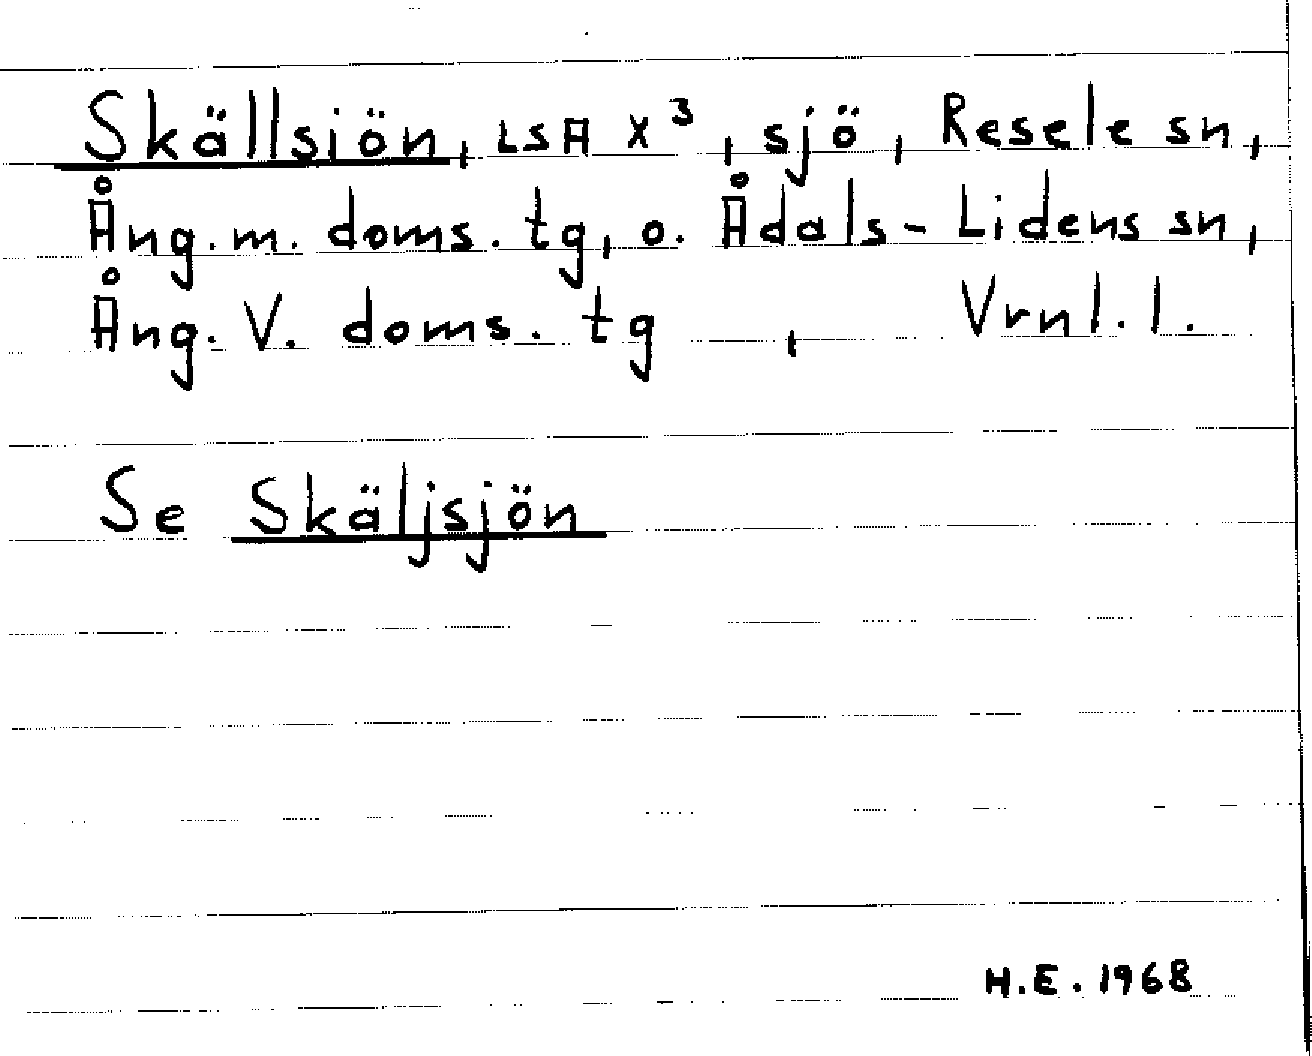 Skällsiön, LSA X³, sjö, Resele sn,
Ång. m. doms. tg, o. Ådals-Lidens sn,
Ång. V. doms. tg , Vrnl. l.
Se Skäljsjön
H.E. 1968